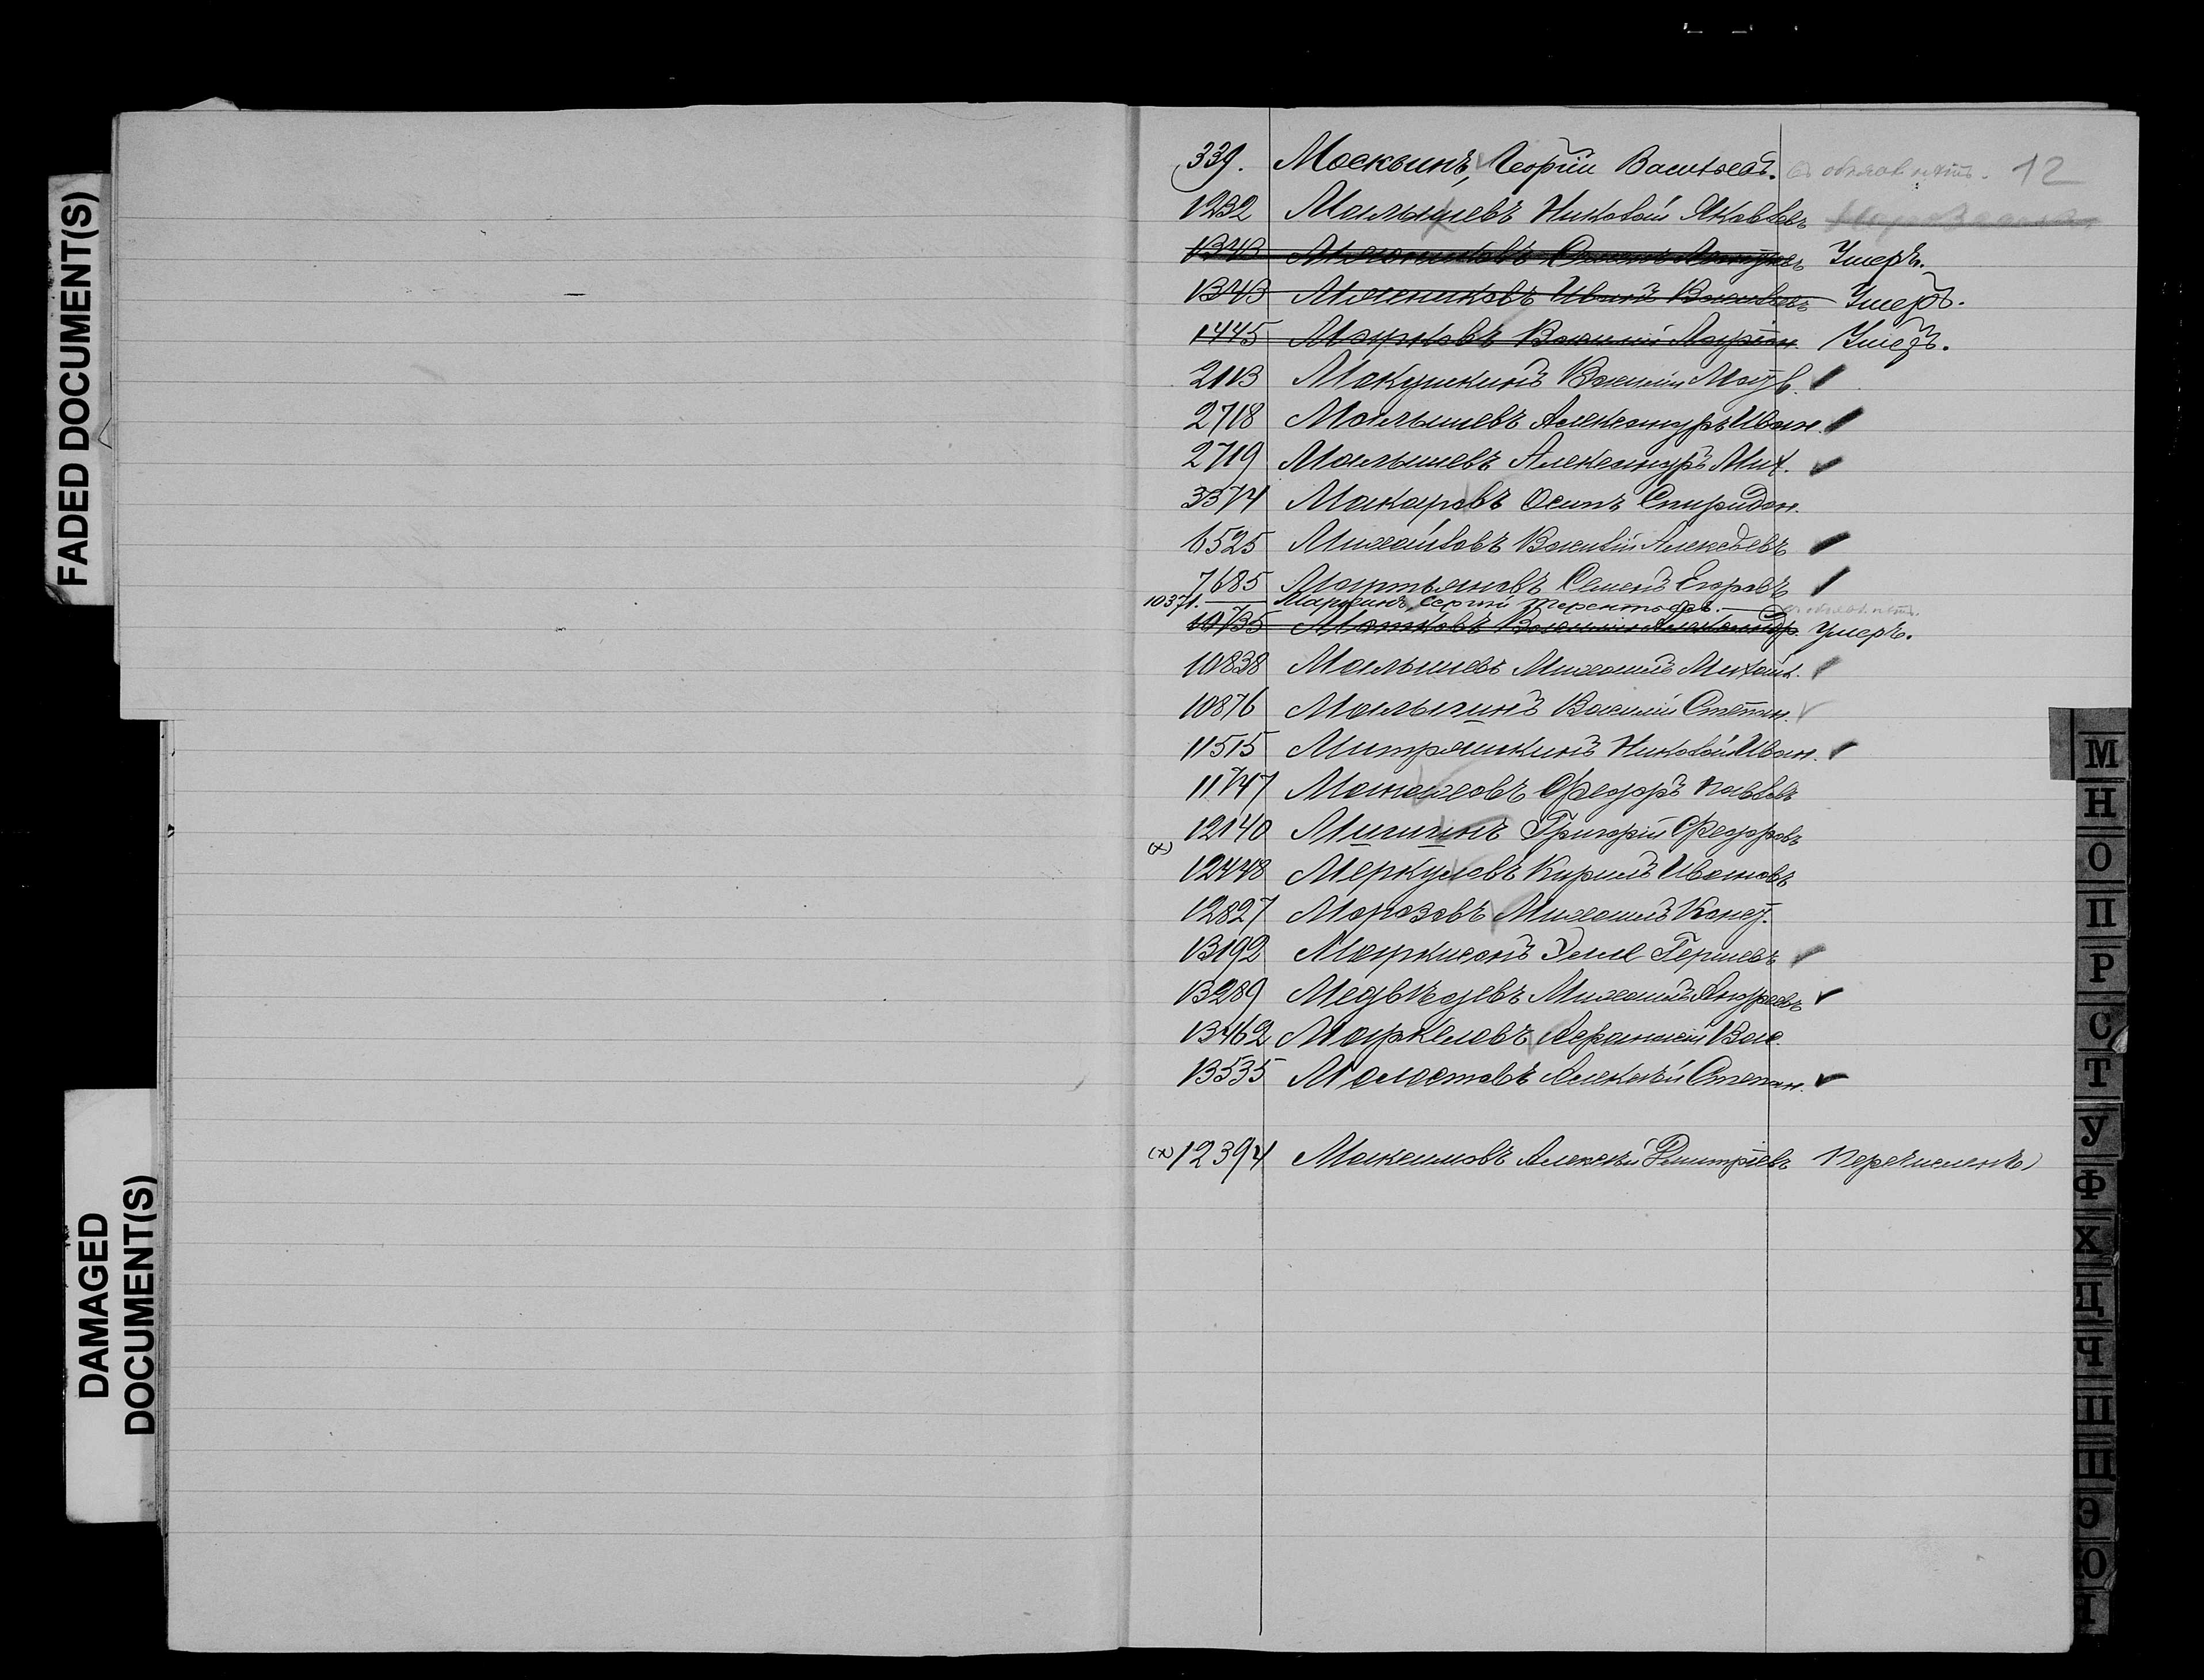 FADED DOCUMENT(S)
DAMAGED
DOCUMENT(S)
339. Москвинъ, Георгій Васильевъ. 12
1232 Малышевъ Николай Яковлевъ
1343 Мясниковъ Умеръ.
1343 Мясниковъ Иванъ Васильевъ Умеръ.
1445 Марковъ Василій Умеръ.
2113 Макушкинъ Василій Матв.
2718 Малышевъ Александръ Иван.
2719 Малышевъ Александръ Мих.
3374 Макаровъ Осипъ Спиридон.
6525 Михайловъ Василій Алексѣевъ
7685 Мартьяновъ Семенъ Егоровъ
10371. Сергѣй Терентьевъ.
10735 Василій Александр. Умеръ.
10838 Малышевъ Михаилъ Михаил.
10876 Малыгинъ Василій Степан.
11515 Митряшкинъ Николай Иван.
11747 Ѳедоръ Павловъ
12140 Мишинъ Григорій Ѳедоровъ
(х)
12448 Меркуловъ Кирилъ Ивановъ
12827 Морозовъ Михаилъ Конст.
13192 Эмме Гершевъ
13289 Медвѣдевъ Михаилъ Андреевъ
13462 Маркеловъ Аѳанасій Вас.
13535 Молостовъ Алексѣй Степан.
(х) 12394 Максимовъ Алексѣй Дмитріевъ Перечисленъ
М
Н
О
П
Р
С
Т
У
Ф
Х
Ц
Ч
Ш
Щ
Э
Ю
Я